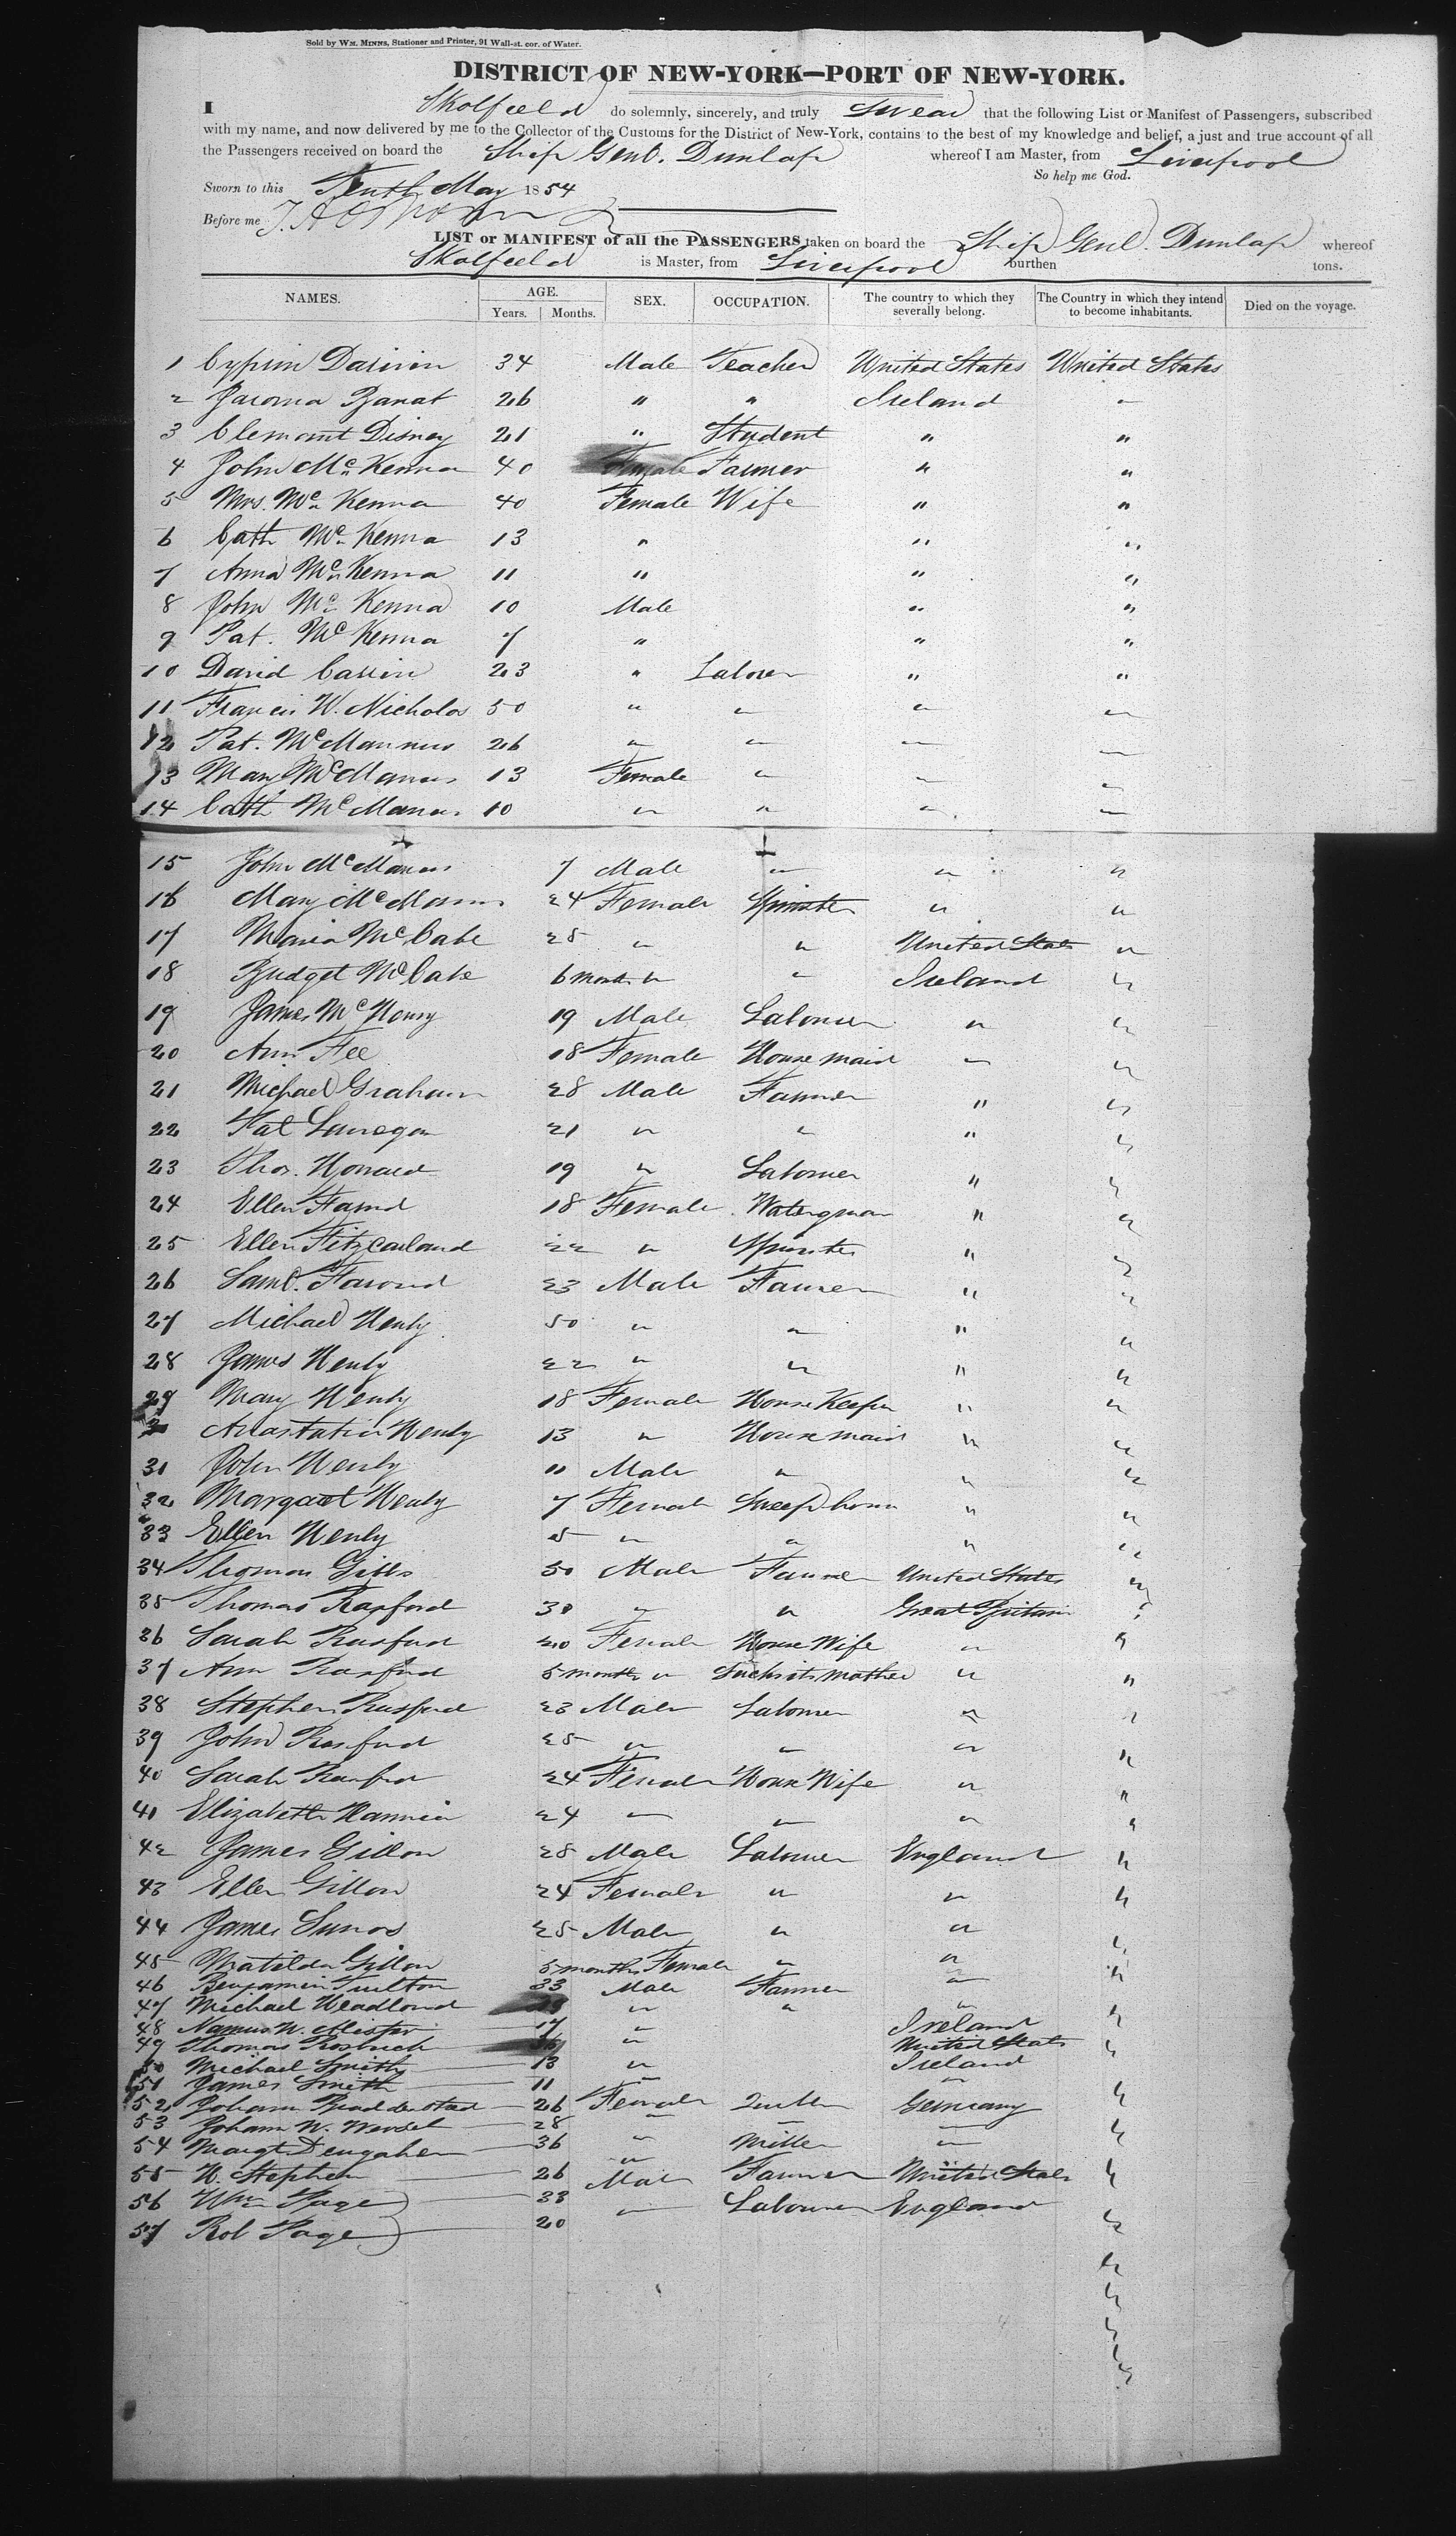 Sold by WM. MINNS, Stationer and Printer, 91 Wall-st. cor. of Water.
DISTRICT OF NEW-YORK—PORT OF NEW-YORK.
I Skolfield do solemnly, sincerely, and truly Swear that the following List or Manifest of Passengers, subscribed
with my name, and now delivered by me to the Collector of the Customs for the District of New-York, contains to the best of my knowledge and belief, a just and true account of all
the Passengers received on board the Ship Genl. Dunlap whereof I am Master, from Liverpool
Sworn to this Tenth May 1854 So help me God.
Before me
LIST or MANIFEST of all the PASSENGERS taken on board the Ship Genl. Dunlap whereof
Skolfield is Master, from Liverpool burthen tons.
NAMES. AGE. Years. Months. SEX. OCCUPATION. The country to which they severally belong. The Country in which they intend to become inhabitants. Died on the voyage.
1 34 Male Teacher United States United States
2 26 " " Ireland "
3 Clemomt Disney 21 " Student " "
4 John Mc Kenna 40 Female Farmer " "
5 Mrs. Mc Kenna 40 Female Wife " "
6 Cath Mc Kenna 13 " " "
7 Anna Mc Kenna 11 " " "
8 John Mc Kenna 10 Male " "
9 Pat. Mc Kenna 7 " " "
10 David Cassin 23 " Laborer " "
11 Francis W. Nicholas 50 " " " "
12 Pat. McMannus 26 " " " "
13 Mary McManus 13 Female " " "
14 Cath McManus 10 " " " "
15 John McManus 7 Male " " "
16 Mary McManus 24 Female Spinster " "
17 Maria McCabe 25 " " United States "
18 Bridget McCabe 6 months " " Ireland "
19 James McHenry 19 Male Labourer " "
20 Ann Fee 18 Female House maid " "
21 Michael Graham 28 Male Farmer " "
22 Pat 21 " " " "
23 Thos. Howard 19 " Labourer " "
24 Ellen 18 Female " "
25 Ellen 22 " Spinster " "
26 Saml. 23 Male Farmer " "
27 Michael Henly 50 " " " "
28 James Henly 22 " " " "
29 Mary Henly 18 Female House Keeper " "
Anastatia Henly 13 " House maid " "
31 John Henly 11 Male " " "
32 Margaret Henly 7 Female " "
33 Ellen Henly 5 " " " "
34 Thomas Gibbs 50 Male Farmer United States "
35 Thomas Rasford 30 " " Great Britain "
36 Sarah Rasford 20 Female House Wife " "
37 Ann Rasford 5 months " Suck its mother " "
38 Stephen Rasford 23 Male Labourer " "
39 John Rasford 25 " " " "
40 Sarah Rasford 24 Female House Wife " "
41 Elizabeth 24 " " " "
42 James Gillon 28 Male Labourer England "
43 Ellen Gillon 24 Female " " "
44 James 25 Male " " "
45 Matilda Gillon 5 months Female " " "
46 Benjamin Fuilton 33 Male Farmer " "
47 Michael Headlond " " " "
48 17 " Ireland "
49 Thomas " United States "
50 Michael Smith 13 " Ireland
51 James Smith 11 " "
52 26 Female Germany "
53 Joham W. 28 " " "
54 Margt 36 " Miller " "
55 W. Stephen 26 Male Farmer United States "
56 Wm Page 33 " Labourer England "
57 Rob Page 20